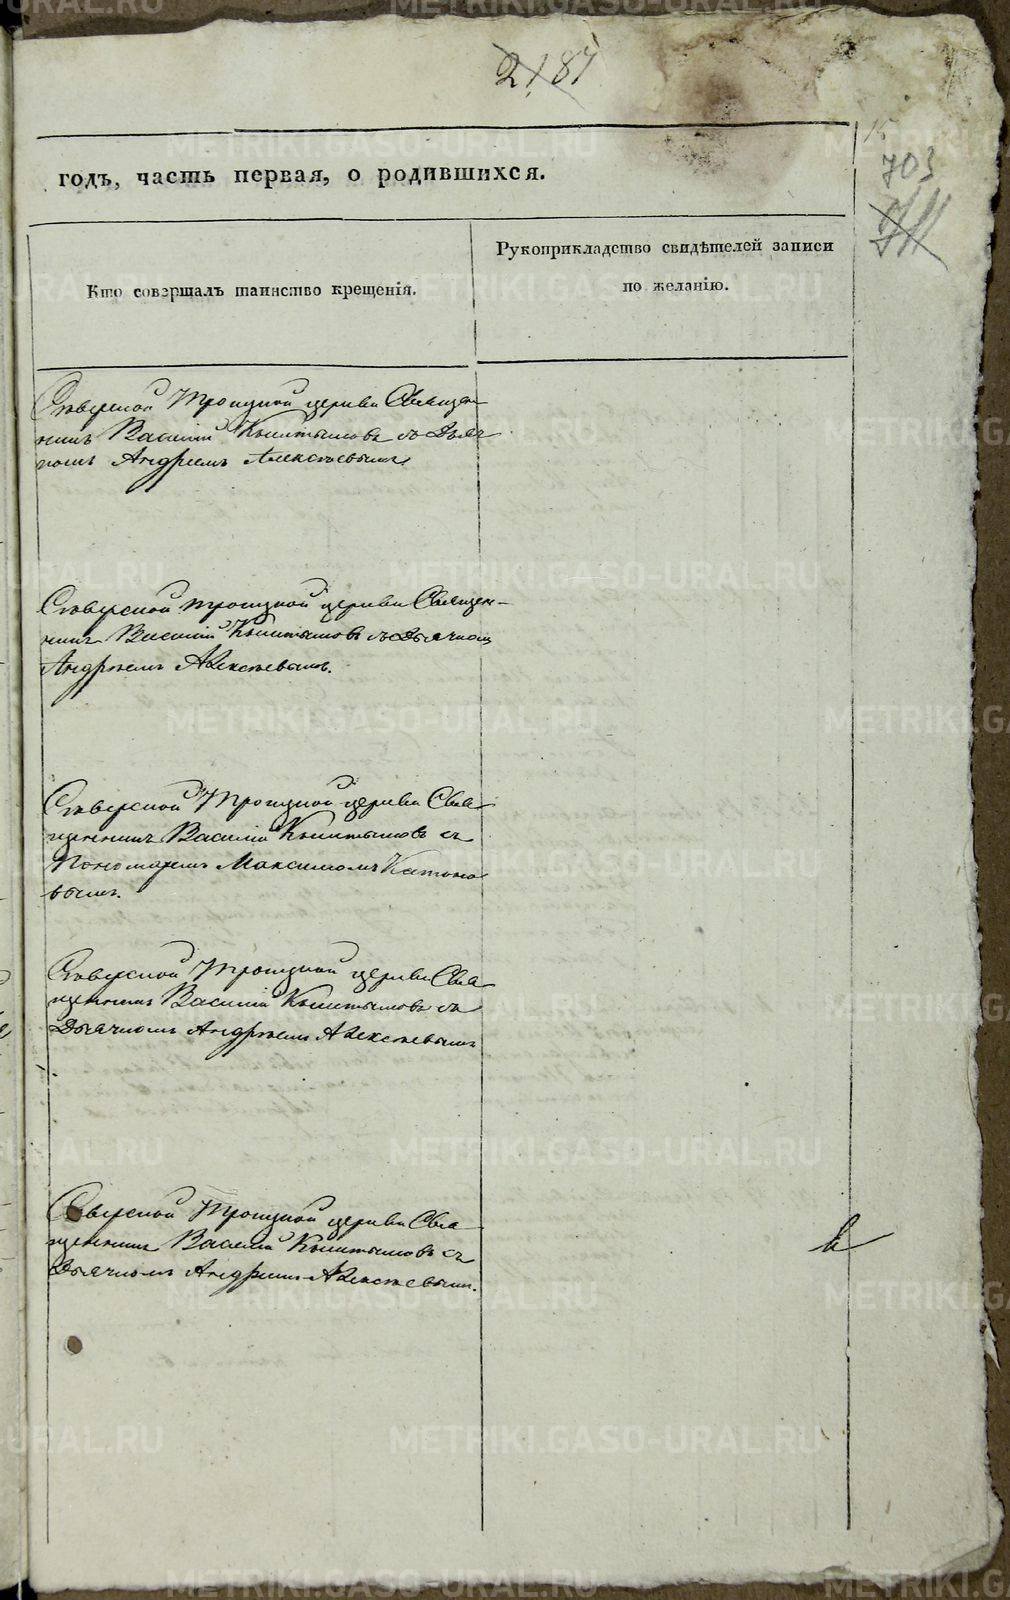 2187
703
годъ, часть первая, о родившихся.
Кто совершалъ таинство крещенія.
Рукоприкладство свидѣтелей записи
по желанію.
Сѣверской Троицкой церкви Священ-
никъ Василій Кыштымовъ съ Дьяч
комъ Андреемъ Алексѣевымъ
Сѣверской Троицкой церкви Священ-
никъ Василій Кыштымовъ съ Дьячкомъ
Андреемъ Алексѣевымъ.
Сѣверской Троицкой церкви Свя
щенникъ Василій Кыштымовъ съ
Пономаремъ Максимомъ
вымъ.
Сѣверской Троицкой церкви Свя
щенникъ Василій Кыштымовъ съ
Дьячкомъ Андреемъ Алексѣевымъ
Сѣверской Троицкой церкви Свя
щенникъ Василій Кыштымовъ съ
Дьячкомъ Андреемъ Алексѣевымъ.
METRIKI.GASO-URAL.RU